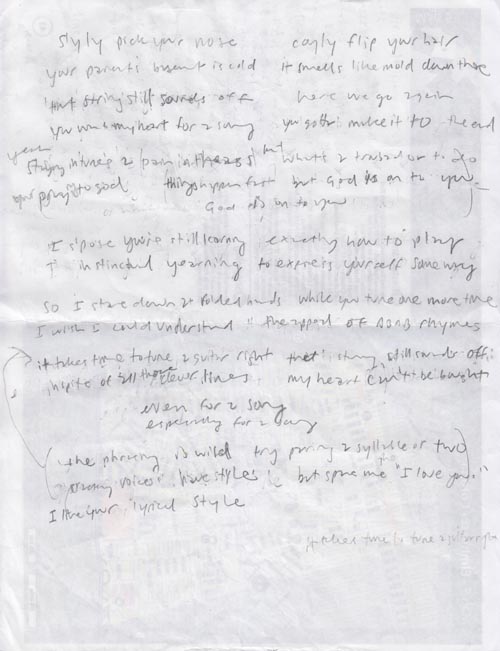 Slyly pick your nose coyly flip your hair
your parents basement is cold it smells like mold down there
that string still sounds off here we go again
you want my heart for a song you gotta make it to the end
yeah staying in tune's a pain in the ass but what's a trusted or to do
your to god things happen fast but God is on to you
God is on to you
I s'pose you're still learning exactly how to play
I instinctual yearning to express yourself some way
So I stare down at folded hands while you tune one more time
I wish I could understand the appeal of ABAB rhymes
it takes time to tune a guitar right that string still sounds off
in spite of all those clever lines, my heart can't be bought
even for a song
especially for a song
the phrasing is wild try paring a syllable or two
voices have styles but spare me "I love you."
I like your lyrical style
it takes time to tune a guitar right